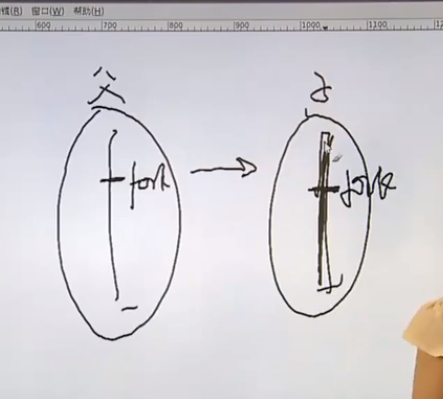 窗口(W) 帮助(H)
600 700 800 900 1000 1100
父 子
fork fork